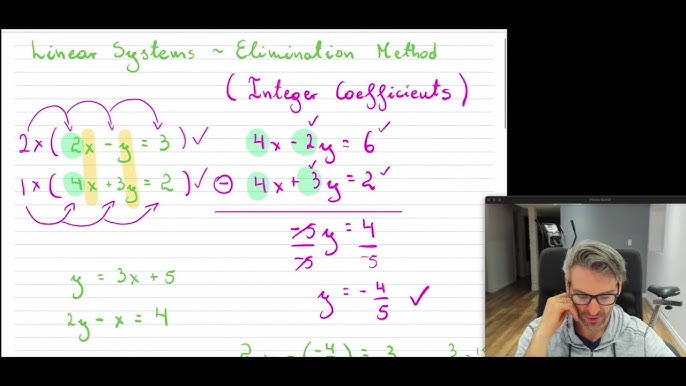 Linear Systems ~ Elimination Method
(Integer Coefficients)
2x(2x - y = 3) ✓
1x(4x + 3y = 2) ✓
4x - 2y = 6 ✓
⊖ 4x + 3y = 2 ✓
-5y = 4
-5 -5
y = -4/5 ✓
y = 3x + 5
2y - x = 4